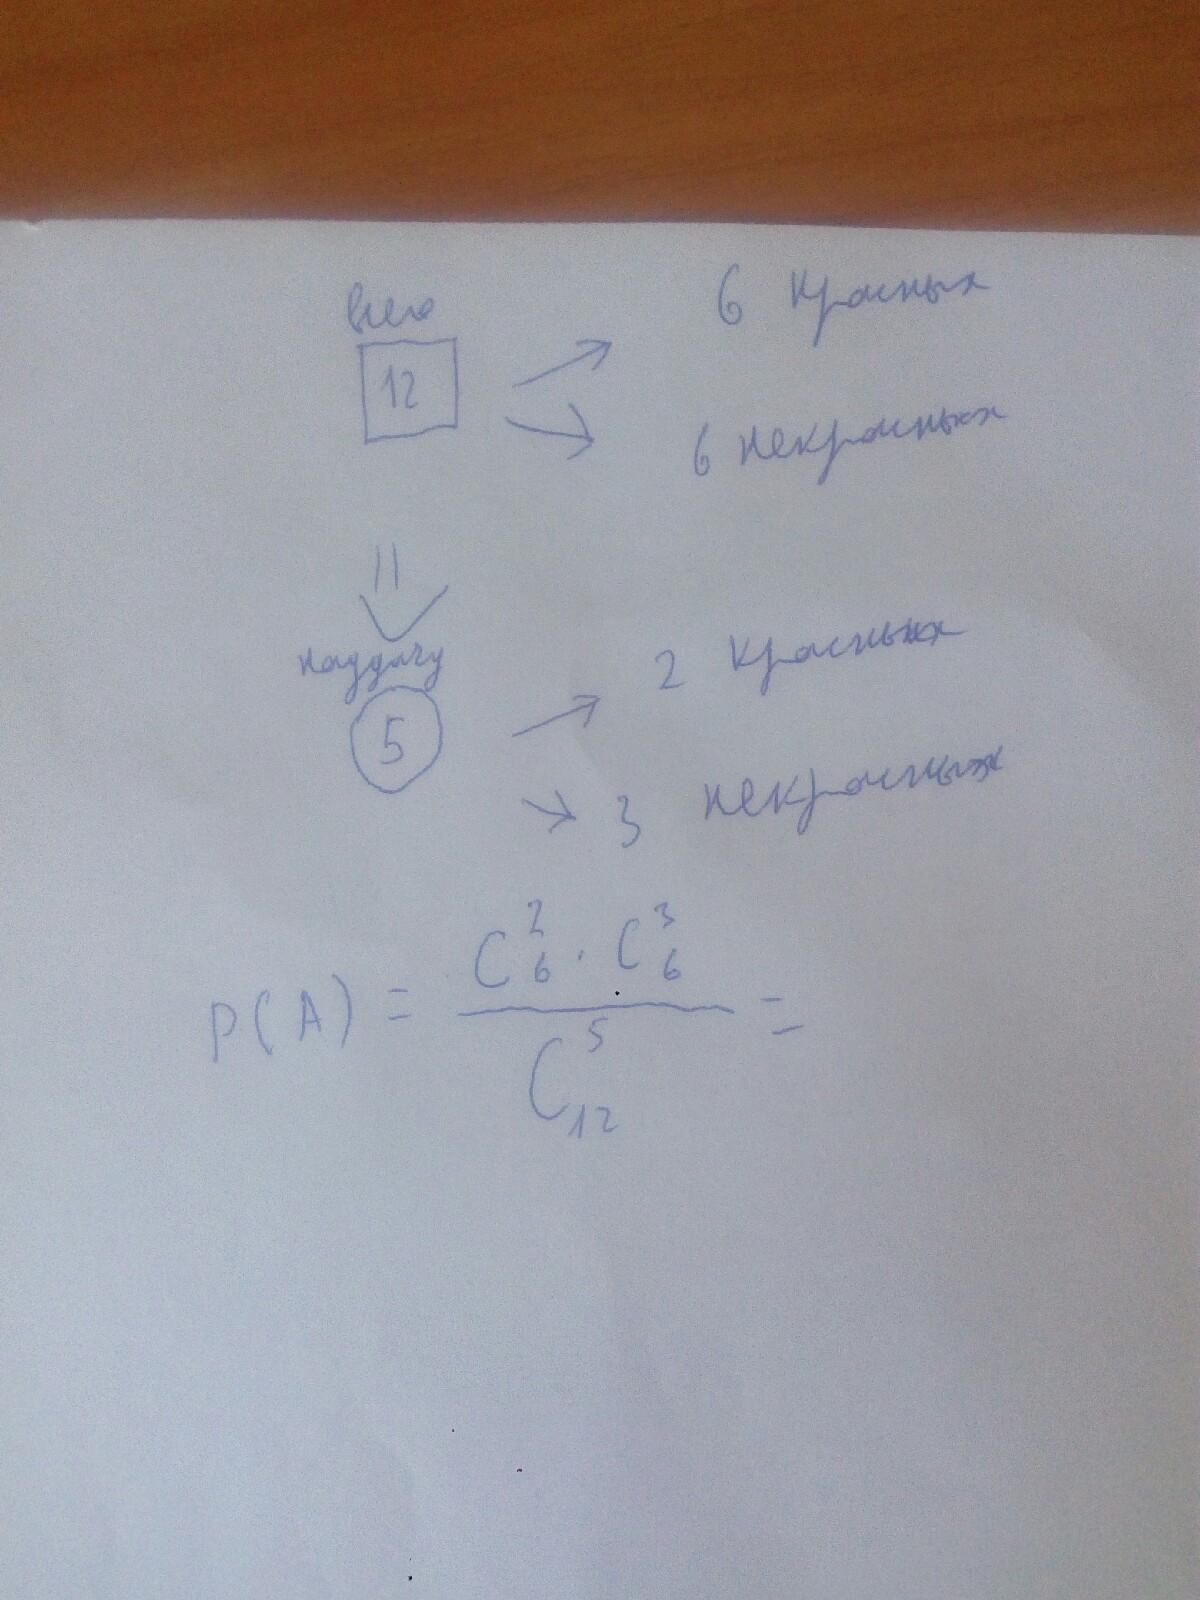 всего
12
6 красных
6 некрасных
наудачу
5
2 красных
3 некрасных
P(A) = \frac{C_6^2 \cdot C_6^3}{C_{12}^5} =